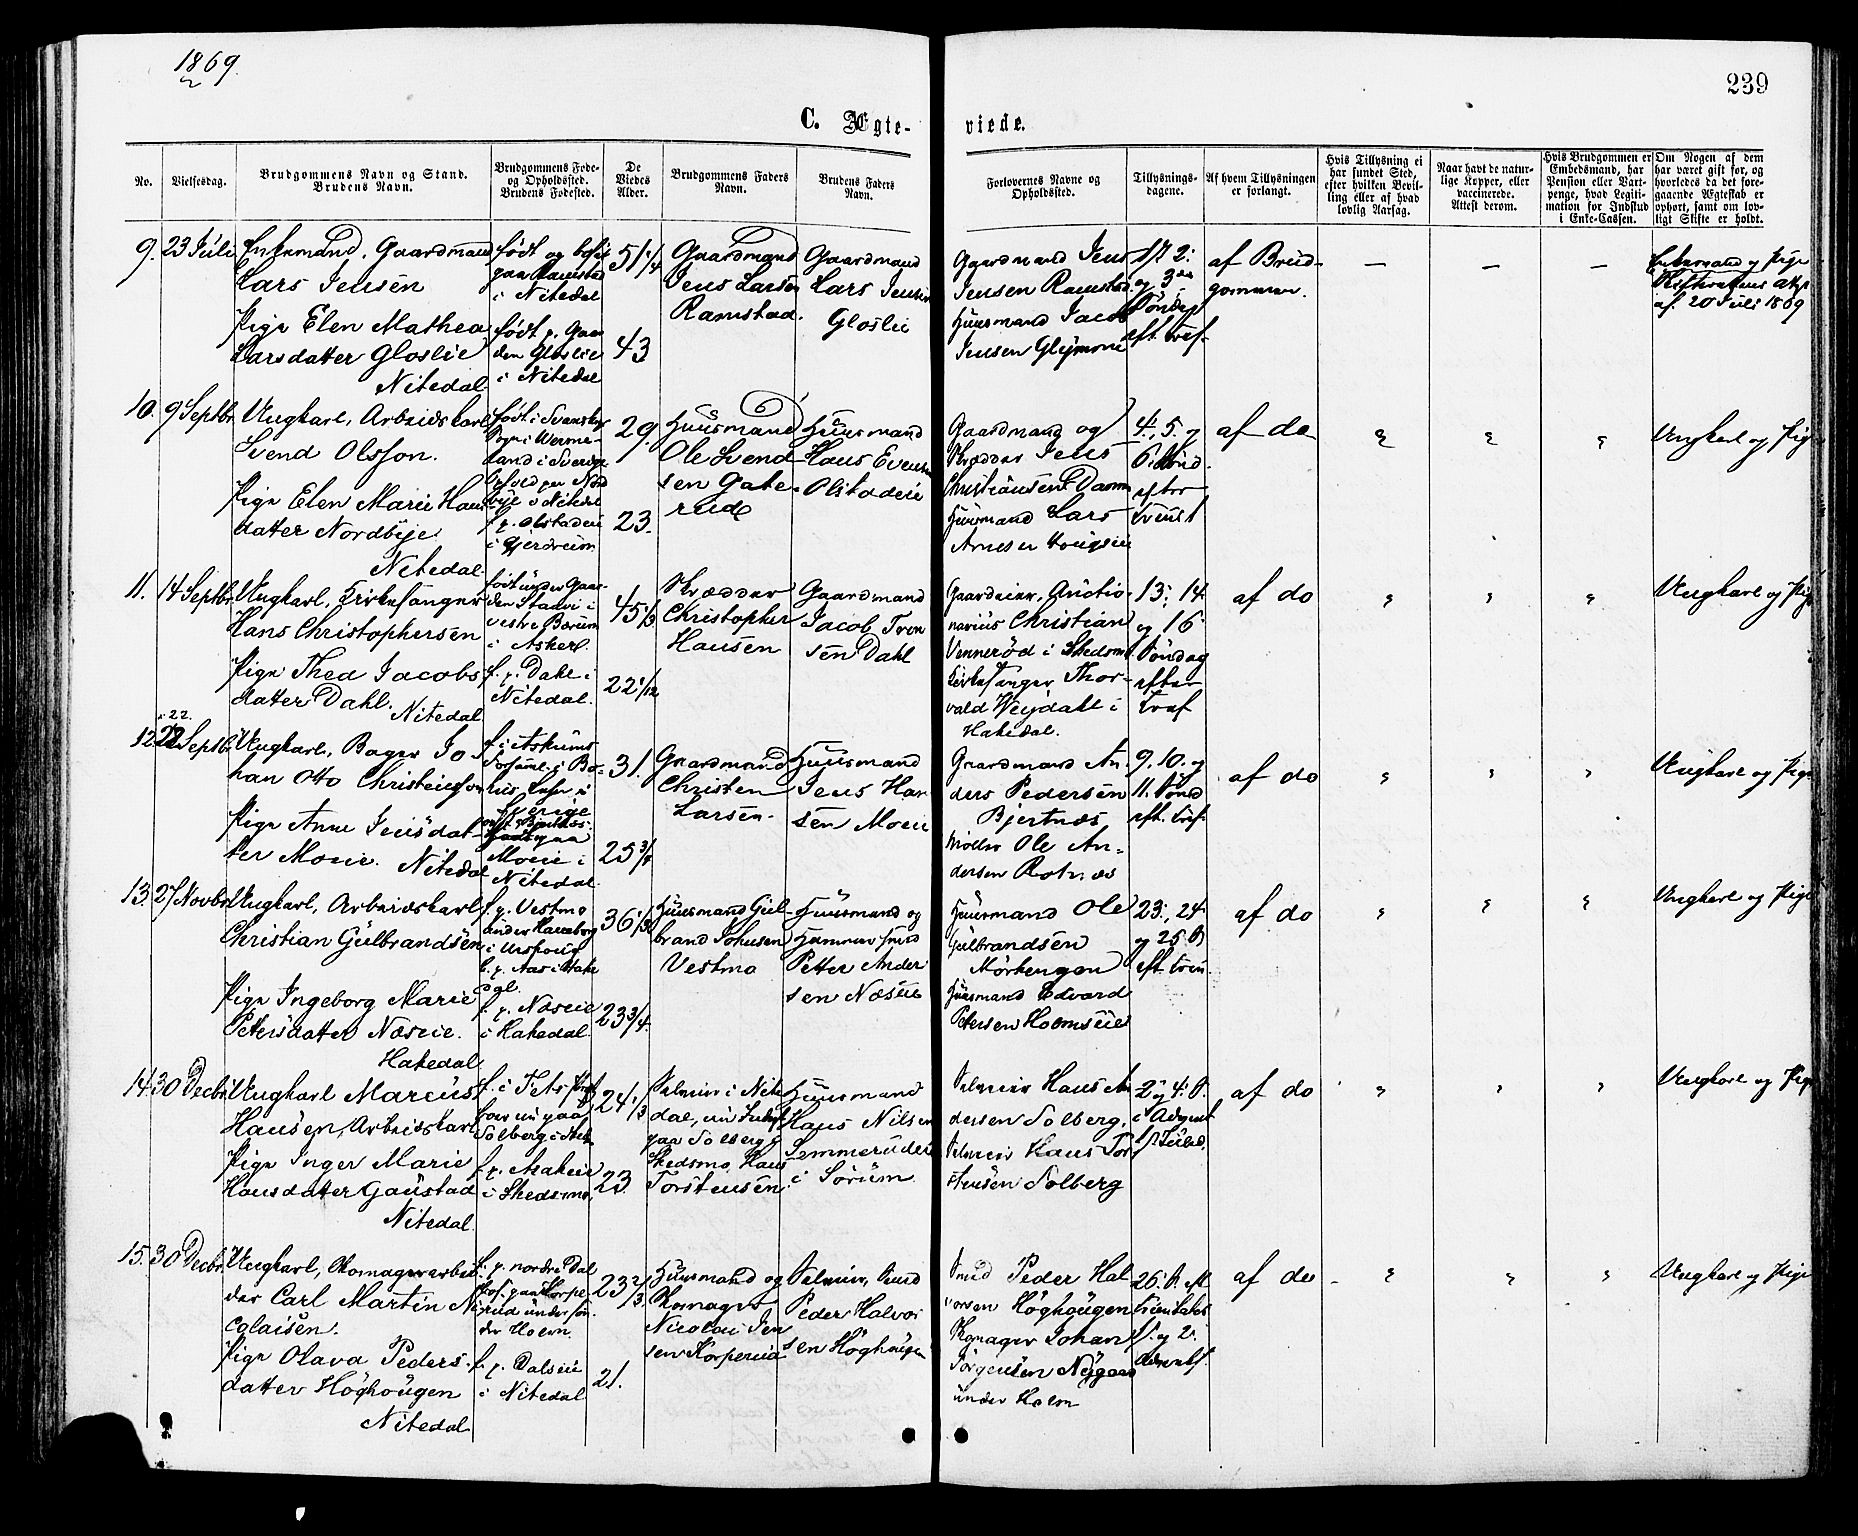 1869
239
C. Ægte-
viede.
No.
Vielsesdag.
Brudgommens Navn og Stand.
Brudens Navn.
Brudgommens Føde-
og Opholdssted.
Brudens Fødested.
De
Viedes
Alder.
Brudgommens Faders
Navn.
Brudens Faders
Navn.
Forlovernes Navne og
Opholdssted.
Tillysnings-
dagene.
Af hvem Tillysningen
er forlangt.
Hvis Tillysning ei
har fundet Sted,
efter hvilken Bevil-
ling eller af hvad
lovlig Aarsag.
Naar havt de natur-
lige Kopper, eller
vaccinerede.
Attest derom.
Hvis Brudgommen er
Embedsmand, har
Pension eller Vart-
penge, hvad Legiti-
mation for Indskud
i Enke-Cassen.
Om Nogen af dem
har været gift før, og
hvorledes da det fore-
gaaende Ægteskab er
ophørt, samt om lov-
ligt Skifte er holdt.
9.
23 Juli
Enkemand, Gaardmand
Lars Jensen
Pige Elen Mathea
Larsdatter Gloslie
Nitedal
født og bosat
paa Ramstad
i Nitedal
født p. Gaar
den Gloslie
i Nitedal
51 1/4
43
Gaardmand
Jens Larsen
Ramstad.
Gaardmand
Lars Jensen
Gloslie
Gaardmand Jens
Jensen Ramstad
Huusmand Jacob
Jensen
1ste 2.
og 3die
Søndag
eft. tref.
af Brud-
gommen.
Enkemand og Pige
Skifterettens att
af 20 Juli 1869
10.
9 Septbr
Ungkarl, Arbeidskarl
Svend Olsson.
Pige Elen Marie Hans
datter Nordbye.
Nitedal.
født i
Sogn i Werme-
land i Sverige
Ophold paa Nord
bye i Nitedal
f. p. Olstadeie
i Gjerdrum
29.
23.
Huusmand
Ole Svend-
sen Gate-
rud
Huusmand
Hans Evensen
Olstadeie
Gaardmand og
Skrædder Jens
Christiansen Dam
Huusmand Lars
Arnesen
4., 5. og
6. Sønd.
efter
trenit
af do
Ungkarl og Pige
11.
14 Septbr
Ungkarl, Kirkesanger
Hans Christophersen
Pige Thea Jacobs
datter Dahl.
Nitedal
født under Gaar-
den Stauvi i
vestre Bærum
i Askerl.
f. p. Dahl i
Nitedal.
45 1/3
22 1/12
Skrædder
Christopher
Hansen
Gaardmand
Jacob Iven
sen Dahl
Gaardeier, Auctio-
narius Christian
Vennerød i Skedsmo
Kirkesanger Thor-
vald Weydahl i
Hakedal.
13., 14.
og 16
Søndag
efter
tref
af do
Ungkarl og Pige
12.
22 Septbr
Ungkarl, Bager Jo-
han Otto Christensson
Pige Anne Jensdat-
ter Moeie.
Nitedal
f. i Askums
Forsaml. i Bo-
hus Lehn i
Sverige
Moeie i
Nitedal.
31.
25 3/4
Gaardmand
Christen
Larsen.
Huusmand
Jens Han
sen Moeie
Gaardmand An-
ders Pedersen
Bjertnæs
Møller Ole An-
dersen Rotnæs
9. 10. og
11. Sønd
eft. tref.
af do
Ungkarl og Pige
13.
27 Novbr
Ungkarl, Arbeidskarl
Christian Gulbrandsen
Pige Ingeborg Marie
Petersdatter Næseie.
Hakedal
f. p. Vestmo
under Haneborg
i Urskoug
b. p. Aas i Hake
dal.
f. p. Næseie
i Hakedal
36 1/3
23 3/4
Huusmand Gul-
brand Johnsen
Vestmo
Huusmand og
Hammersmed
Petter Ander
sen Næseie
Huusmand Ole
Gulbrandsen
Mørkengen
Huusmand Edvard
Petersen Holmseie
23., 24.
og 25 S
eft. tren.
af do
Ungkarl og Pige
14.
30 Decbr
Ungkarl Marcus
Hansen, Arbeidskarl
Pige Inger Marie
Hansdatter Gaustad
Nitedal
f. i Fets Præst
boer nu paa
Solberg i Sked
f. p. Asakeie
i Skedsmo
24 1/3
23
Selveier i Nite
dal, nu Inderst
paa Solberg i
Skedsmo, Hans
Torstensen
Huusmand
Hans Nilsen
Lemmerudeie
i Sørum
Selveier Hans An
dersen Solberg,
Selveier Hans Tor
stensen Solberg
2 og 4. S.
i Advent
af do
Ungkarl og Pige
15.
30 Decbr.
Ungkarl, Skomagerarbei
der Carl Martin Ni
colaisen.
Pige Olava Peders-
datter Høghougen
Nitedal
f. p. nordre Dal
bos. paa Korpe-
rud under søn
dre Holm.
f. p. Dalseie
i Nitedal
23 2/3
21.
Huusmand og
Skomager
Nicolai Jen
sen Korperud
Selveier, Smed
Peder Halvor
sen Høghougen
Smed Peder Hal
vorsen Høghougen
Skomager Johan
Jørgensen Nygaard
under Holm
26. S. eft.
Trinitatis
1. og 2.
Advents.
af do
Ungkarl og Pige